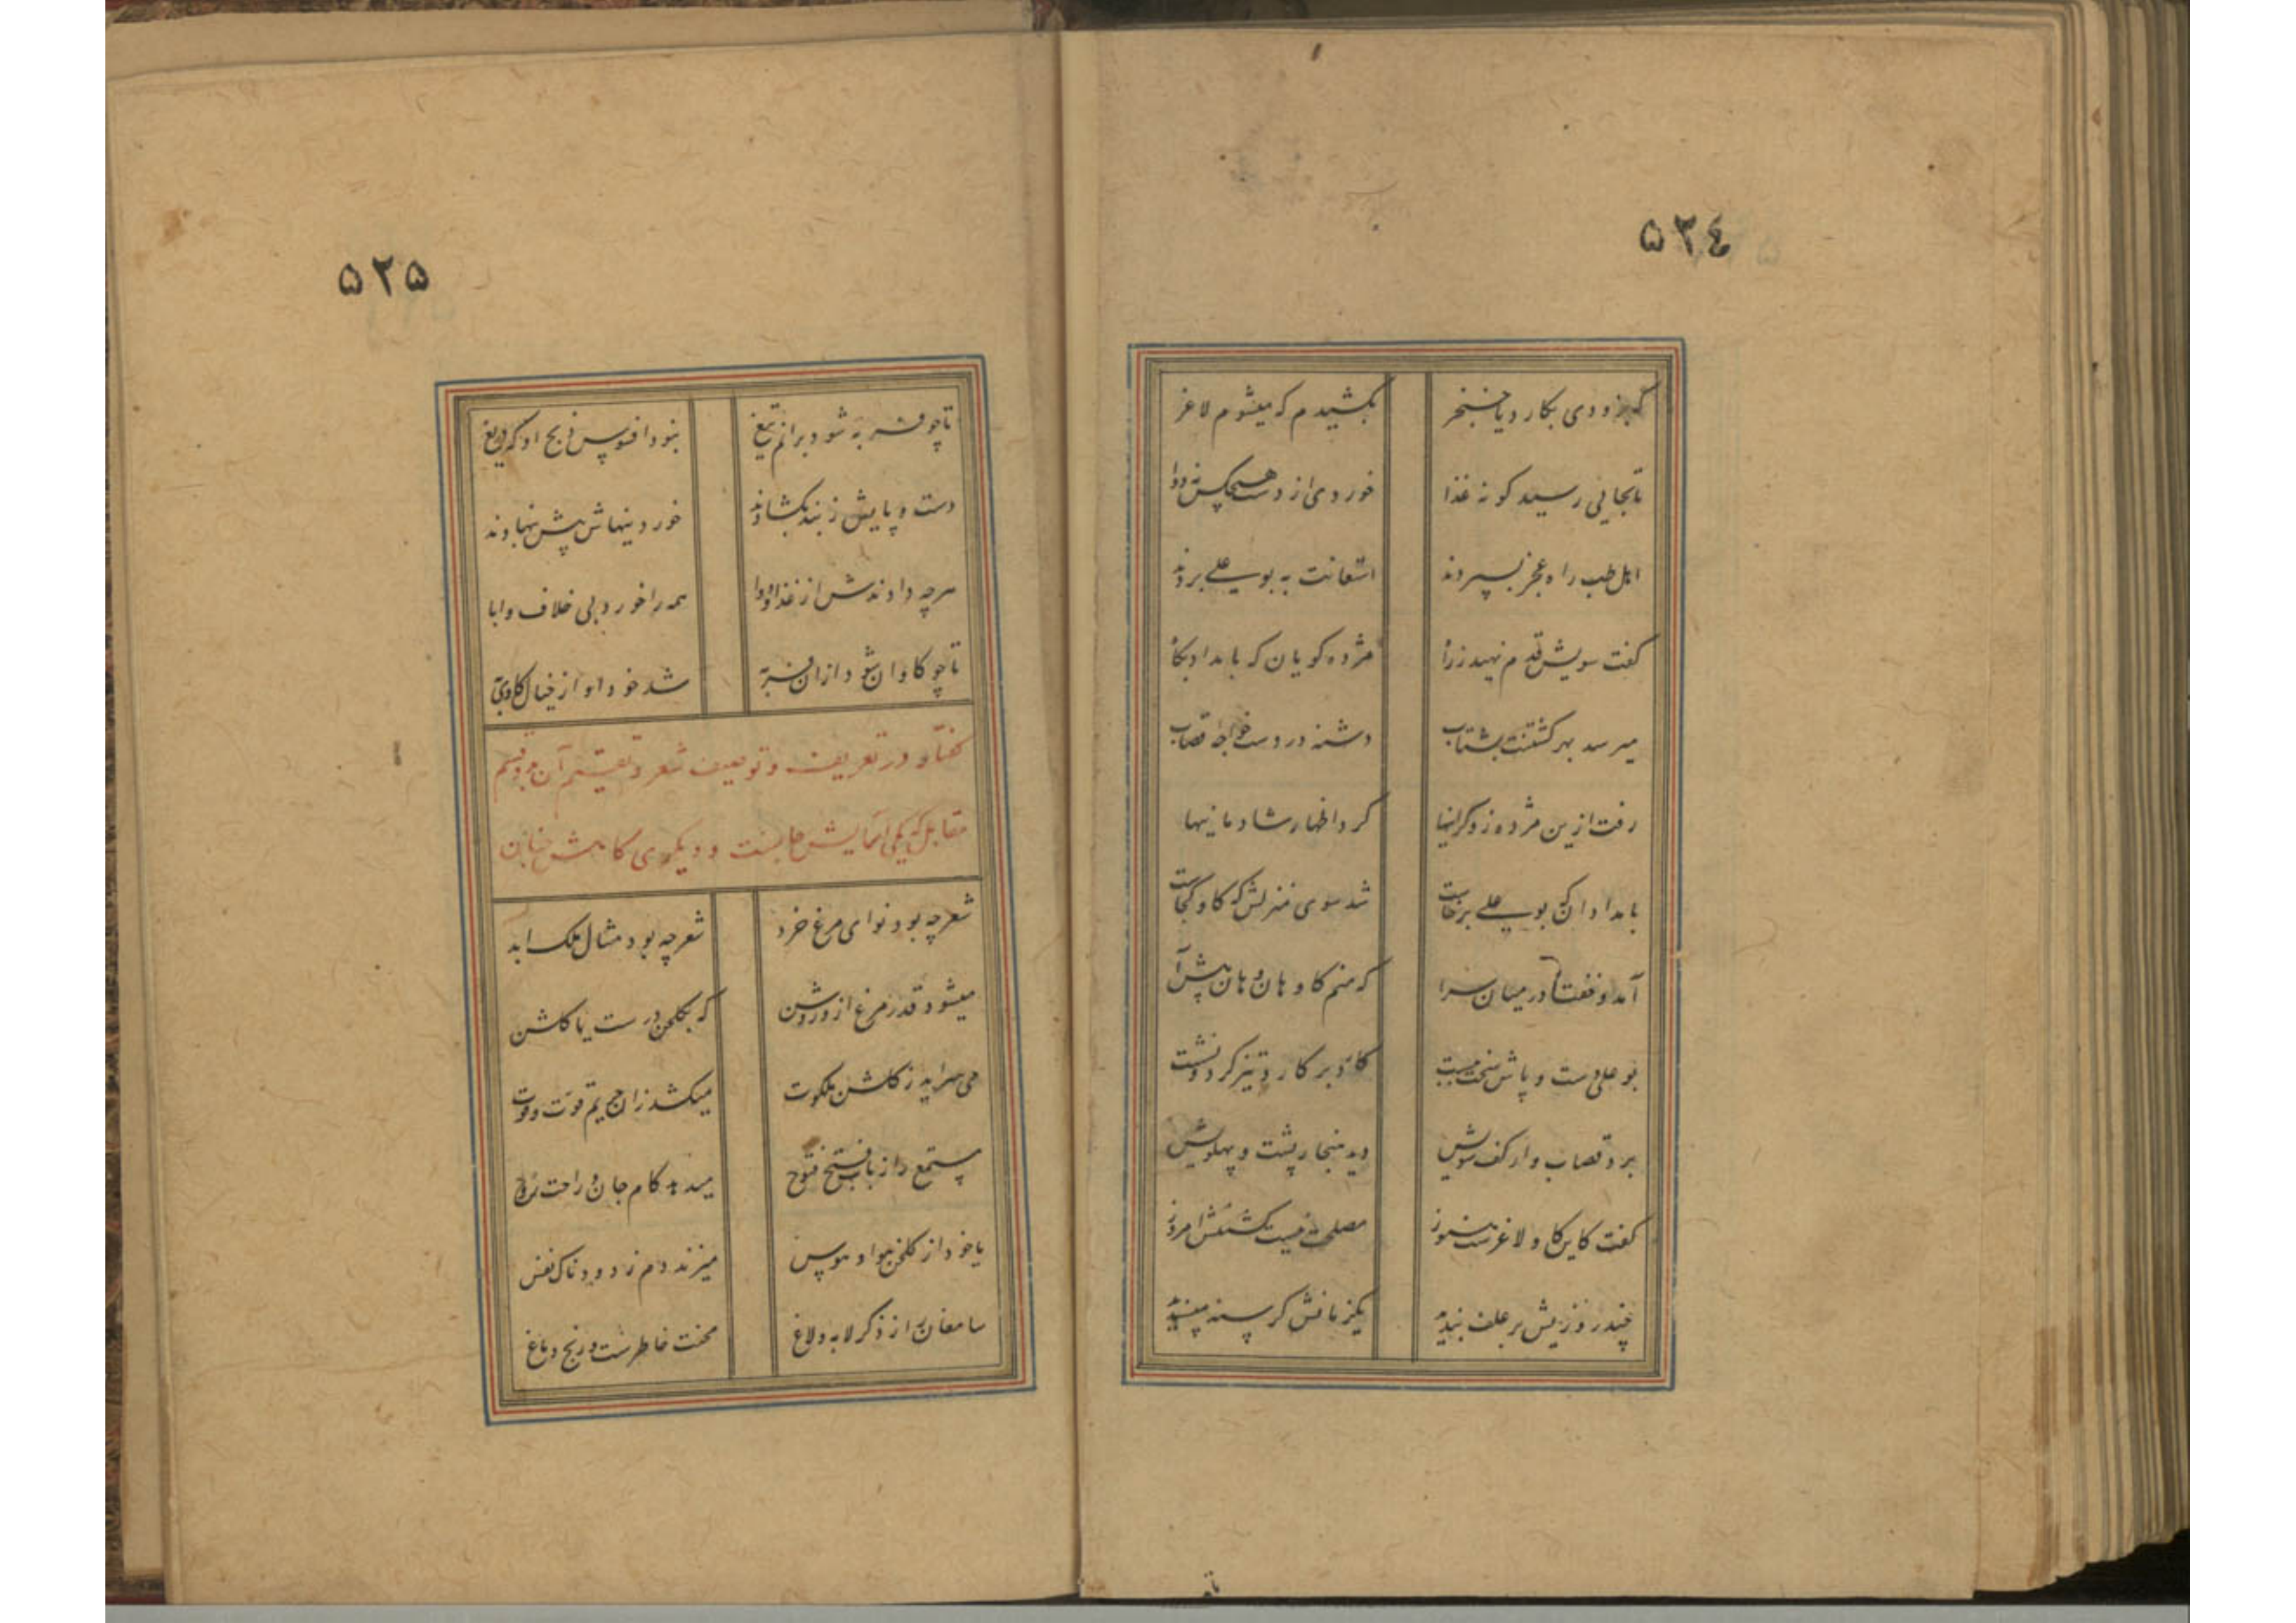 ۵۲٤
که بزودی بکارد یا خنجر بکشیدم که میشوم لاغر
تا بجایی رسید کو نه غذا خوردی از دست هیچکس نه دوا
اهل طب راه عجز بسپردند استعانت به بوعلی بردند
گفت سویش قدم نهید ز راه مژده گویان که بامداد پگاه
میرسد بهر کشتنت بشتاب دشنه در دست خواجه قصاب
رفت ازین مژده زو گرانیها کرد اظهار شادمانیها
بامدادان که بوعلی برخاست شد سوی منزلش که گاو کجاست
آمد و خفت در میان سرا که منم گاو هان و هان پیش آ
بوعلی دست و پاش سخت ببست کارد بر کارد تیز کرد و نشست
برد قصاب وار کف سویش دید هنجار پشت و پهلویش
گفت کاین گاو لاغرست هنوز مصلحت نیست کشتنش امروز
چند روزیش بر علف بندید یکزمانش گرسنه مپسندید
تا
۵۲۵
تا چو فربه شود برانم تیغ نبود افسوس ذبح او که دریغ
دست و پایش ز بند بگشادند خوردنیهاش پیش بنهادند
هرچه دادندش از غذا و دوا همه را خورد بی خلاف و ابا
تا چو گاوان شود ازان فربه شد خود او از خیال گاوی به
گفتار در تعریف و توصیف شعر و تقسیم آن بر دو قسم
مقابل که یکی آسایش جانست و دیگری کاهش جنان
شعر چه بود نوای مرغ خرد شعر چه بود مثال ملک ابد
میشود قدر مرغ ازو روشن که بگلخن درست یا گلشن
می سراید ز گلشن ملکوت میکشد زان حریم قوت و قوت
مستمع را ز باب فتح فتوح میدهد کام جان و راحت روح
یا خود از گلخن هوا و هوس میزند دم ز دود ناک نفس
سامعان را ز ذکر لابه و لاغ محنت خاطرست و رنج دماغ